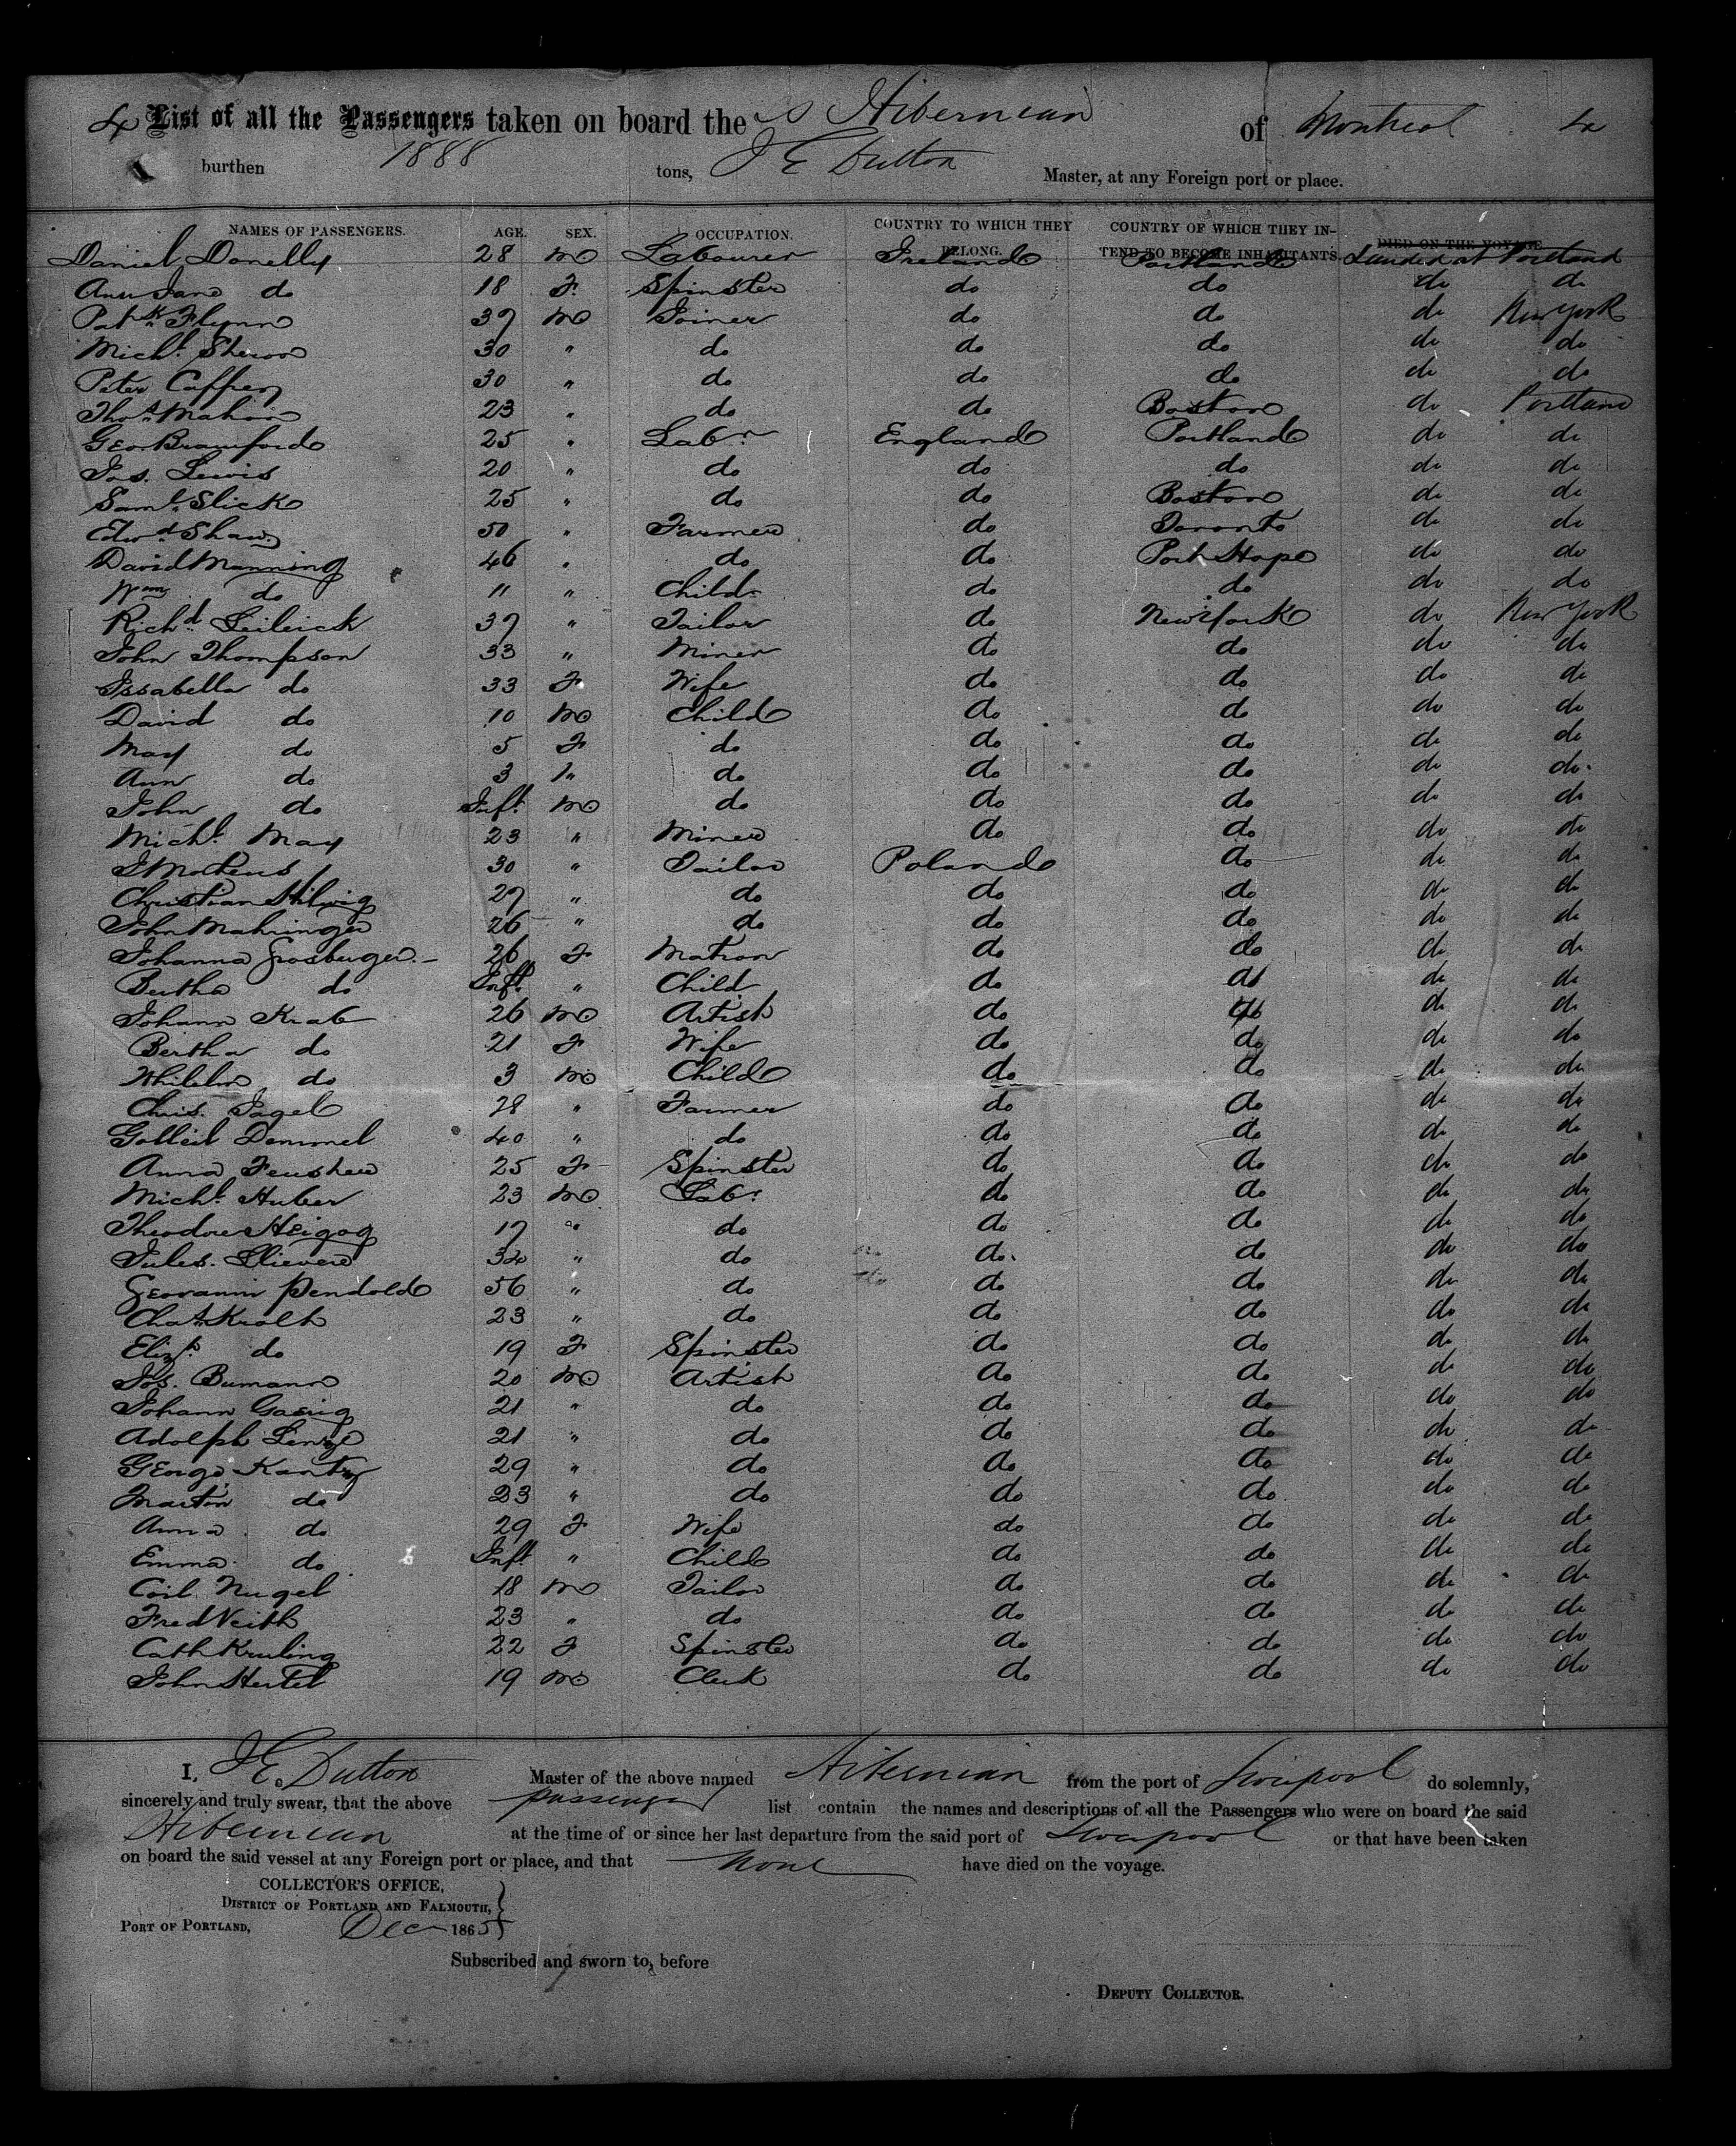 4 List of all the Passengers taken on board the SS Hibernian of Montreal 4
burthen 1888 tons, J E Dutton Master, at any Foreign port or place.
NAMES OF PASSENGERS. AGE. SEX. OCCUPATION. COUNTRY TO WHICH THEY BELONG. COUNTRY OF WHICH THEY INTEND TO BECOME INHABITANTS. DIED ON THE VOYAGE
Daniel Donelly 28 M Labourer Ireland Portland Landed at Portland
Ann Jane do 18 F Spinster do do do do
Patk Flynn 37 M Joiner do do do New York
Michl. Sheron 30 " do do do do do
Peter Caffrey 30 " do do do do do
Thos Mahon 23 " do do Boston do Portland
Geo. Brawford 25 " Labr England Portland do do
Jos. Lewis 20 " do do do do do
Saml. Slick 25 " do do Boston do do
Edwd Shaw 50 " Farmer do Toronto do do
David Manning 46 " do do Port Hope do do
Wm do 11 " Child do do do do
Richd. 37 " Tailor do New York do New York
John Thompson 33 " Miner do do do do
Issabella do 33 F Wife do do do do
David do 10 M Child do do do do
May do 5 F do do do do do
Ann do 3 " do do do do do
John do Inft M do do do do do
Michl. May 23 " Miner do do do do
30 " Tailor Poland do do do
Christian Hilwig 27 " do do do do do
John Mahringer 26 " do do do do do
Johanna Grosberger 26 F Matron do do do do
Bertha do Inft. " Child do do do do
Johann Krab 26 M Artish do do do do
Bertha do 21 F Wife do do do do
do 3 M Child do do do do
Chris. Jagel 28 " Farmer do do do do
Demmel 40 " do do do do do
Anna 25 F Spinster do do do do
Michl. Huber 23 M Labr do do do do
Theodore 17 " do do do do do
Jules. 34 " do do do do do
56 " do do do do do
Chas Kralt 23 " do do do do do
Elizh. do 19 F Spinster do do do do
Jos. Bumann 20 M Artish do do do do
Johann 21 " do do do do do
Adolph 21 " do do do do do
George Kantz 29 " do do do do do
Martin do 23 " do do do do do
Anna do 29 F Wife do do do do
Emma do Inft " Child do do do do
Nugel 18 M Tailor do do do do
Fred Veith 23 " do do do do do
Cath Kruling 22 F Spinster do do do do
John Hertel 19 M Clerk do do do do
I, J E. Dutton Master of the above named Hibernian from the port of Liverpool do solemnly,
sincerely and truly swear, that the above passenger list contain the names and descriptions of all the Passengers who were on board the said
Hibernian at the time of or since her last departure from the said port of Liverpool or that have been taken
on board the said vessel at any Foreign port or place, and that None have died on the voyage.
COLLECTOR'S OFFICE,
DISTRICT OF PORTLAND AND FALMOUTH,
PORT OF PORTLAND, Dec 1865
Subscribed and sworn to, before
DEPUTY COLLECTOR.